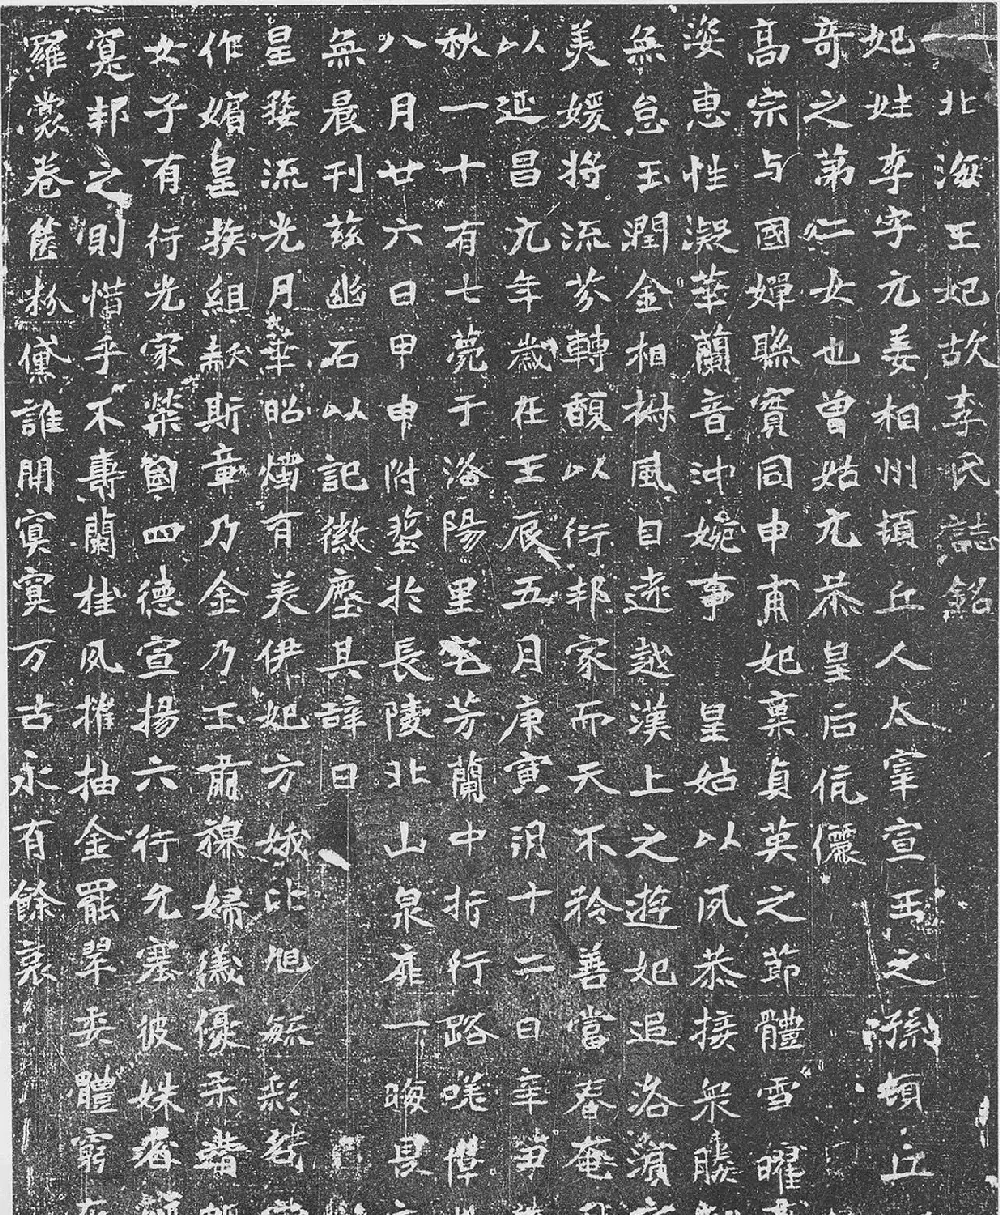 北海王妃故李氏誌銘
妃姓李字元姜相州頓丘人太宰宣王之孫頓丘
奇之第二女也曾姑元恭皇后伉儷
高宗与國嬋聯實同申甫妃稟貞英之節體雪曜
姿惠性凝華蘭音沖婉事皇姑以夙恭接眾媵
無怠玉潤金相樹風自遠越漢上之遊妃追洛濱
美媛將流芬轉馥以衍邦家而天不矜善當春奄
以延昌元年歲在壬辰五月庚寅朔十二日辛丑
秋一十有七薨于洛陽里宅芳蘭中折行路嗟悼
八月廿六日甲申附塟於長陵北山泉扉一晦
無晨刊茲幽石以記徽塵其辞曰
星婺流光月華昭燭有美伊妃方娥比旭毓彩
作嬪皇族組斯章乃金乃玉肅穆婦儀優柔
女子有行光家榮國四德宣揚六行允塞彼姝者
寔邦之則惜乎不壽蘭桂風摧抽金罷翠委體窮
羅裳卷篋粉黛誰開寞寞万古永有餘哀